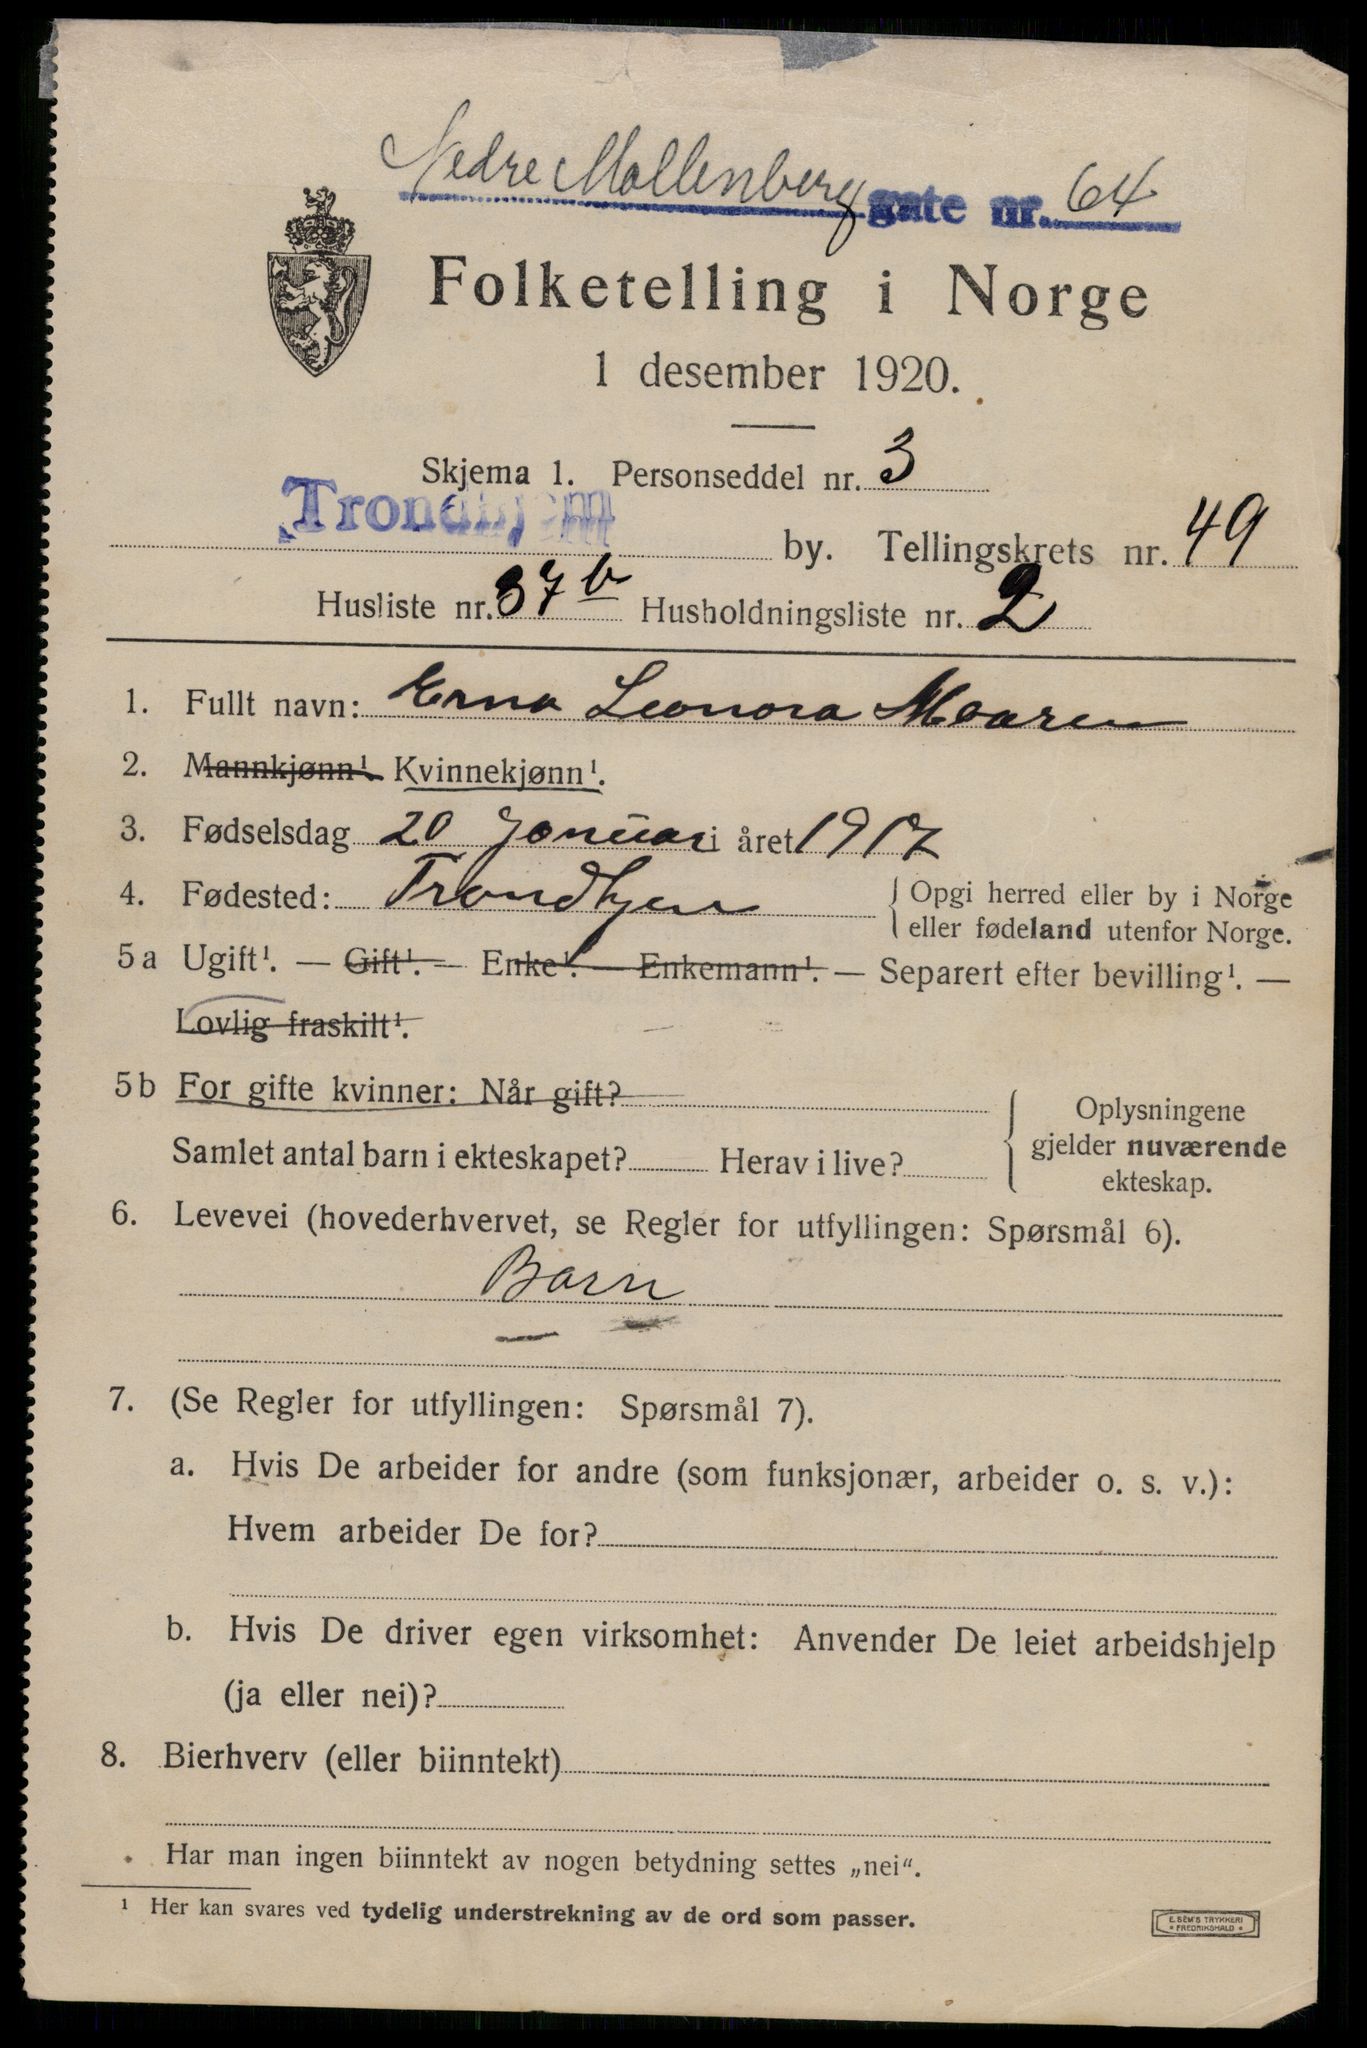 Nedre Møllenberg gate nr. 64
Folketelling i Norge
1 desember 1920.
Skjema 1. Personseddel nr. 3
Trondhjem by. Tellingskrets nr. 49
Husliste nr. 37 b Husholdningsliste nr. 2
1. Fullt navn: Erna Leonora Maaren
2. Mannkjønn¹. Kvinnekjønn¹.
3. Fødselsdag 20 Januar i året 1917
4. Fødested: Trondhjem { Opgi herred eller by i Norge
eller fødeland utenfor Norge.
5a Ugift¹. — Gift¹. — Enke¹. — Enkemann¹. — Separert efter bevilling¹. —
Lovlig fraskilt¹.
5b For gifte kvinner: Når gift?
Samlet antal barn i ekteskapet? Herav i live?
Oplysningene
gjelder nuværende
ekteskap.
6. Levevei (hovederhvervet, se Regler for utfyllingen: Spørsmål 6).
Barn
7. (Se Regler for utfyllingen: Spørsmål 7).
a. Hvis De arbeider for andre (som funksjonær, arbeider o. s. v.):
Hvem arbeider De for?
b. Hvis De driver egen virksomhet: Anvender De leiet arbeidshjelp
(ja eller nei)?
8. Bierhverv (eller biinntekt)
Har man ingen biinntekt av nogen betydning settes „nei“.
¹ Her kan svares ved tydelig understrekning av de ord som passer.
E. SEM'S TRYKKERI
* FREDRIKSHALD *